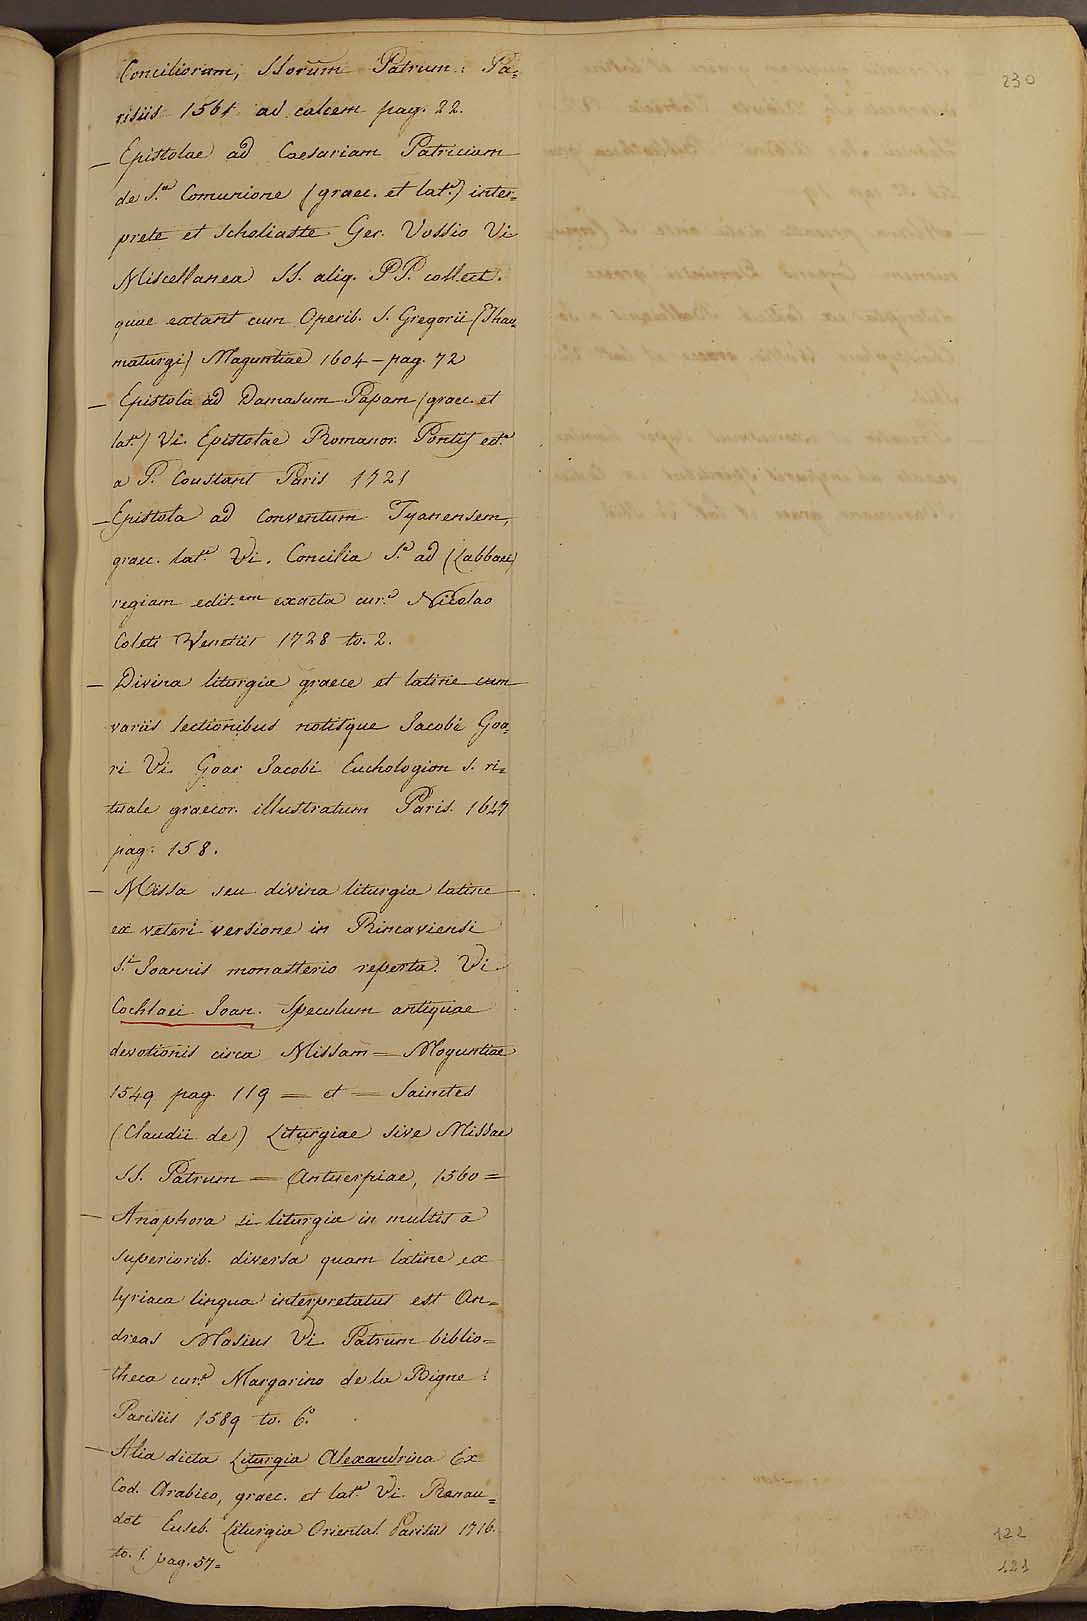 230
Conciliorum, SSorum Patrum: Pa=
risiis 1561 ad calcem pag. 22.
— Epistolae ad Caesariam Patriciam
de S.ª Comunione (graec. et lat.e) inter=
prete et scholiaste Ger. Vossio Vi
Miscellanea SS. aliq. P.P. collect.
quae extant cum Operib. S. Gregorii (Thau=
maturgi) Maguntiae 1604 — pag. 72
— Epistola ad Damasum Papam (graec. et
lat.e) Vi. Epistolae Romanor. Pontif edt.e
a P. Coustant Paris 1721
— Epistola ad Conventum Tyanensem,
graec. lat.e Vi. Concilia S.ª ad (Labbaei)
regiam edit.em exacta cur.e Nicolao
Coleti Venetiis 1728 to. 2.
— Divina liturgia graece et latine cum
variis lectionibus notisque Jacobi Goa=
ri Vi. Goar Jacobi Euchologion s. ri=
tuale graecor. illustratum Paris. 1647
pag. 158.
— Missa seu divina liturgia latine
ex veteri versione in Rincaviensi
S.ti Joannis monasterio reperta. Vi.
Cochlaei Joan. Speculum antiquae
devotionis circa Missam = Moguntiae
1549 pag. 119 = et = Sainctes
(Claudii de) Liturgiae sive Missae
SS. Patrum = Antuerpiae, 1560 =
— Anaphora si liturgia in multis a
superiorib. diversa quam latine ex
syriaca lingua interpretatus est An=
dreas Masius Vi. Patrum biblio=
theca cur.e Margarino de la Bigne:
Parisiis 1589 to. 6.º
— Alia dicta Liturgia Alexandrina Ex
Cod. Arabico, graec. et lat.e Vi. Renau=
dot Euseb. Liturgia Oriental. Parisiis 1716.
to. 1. pag. 57=
122